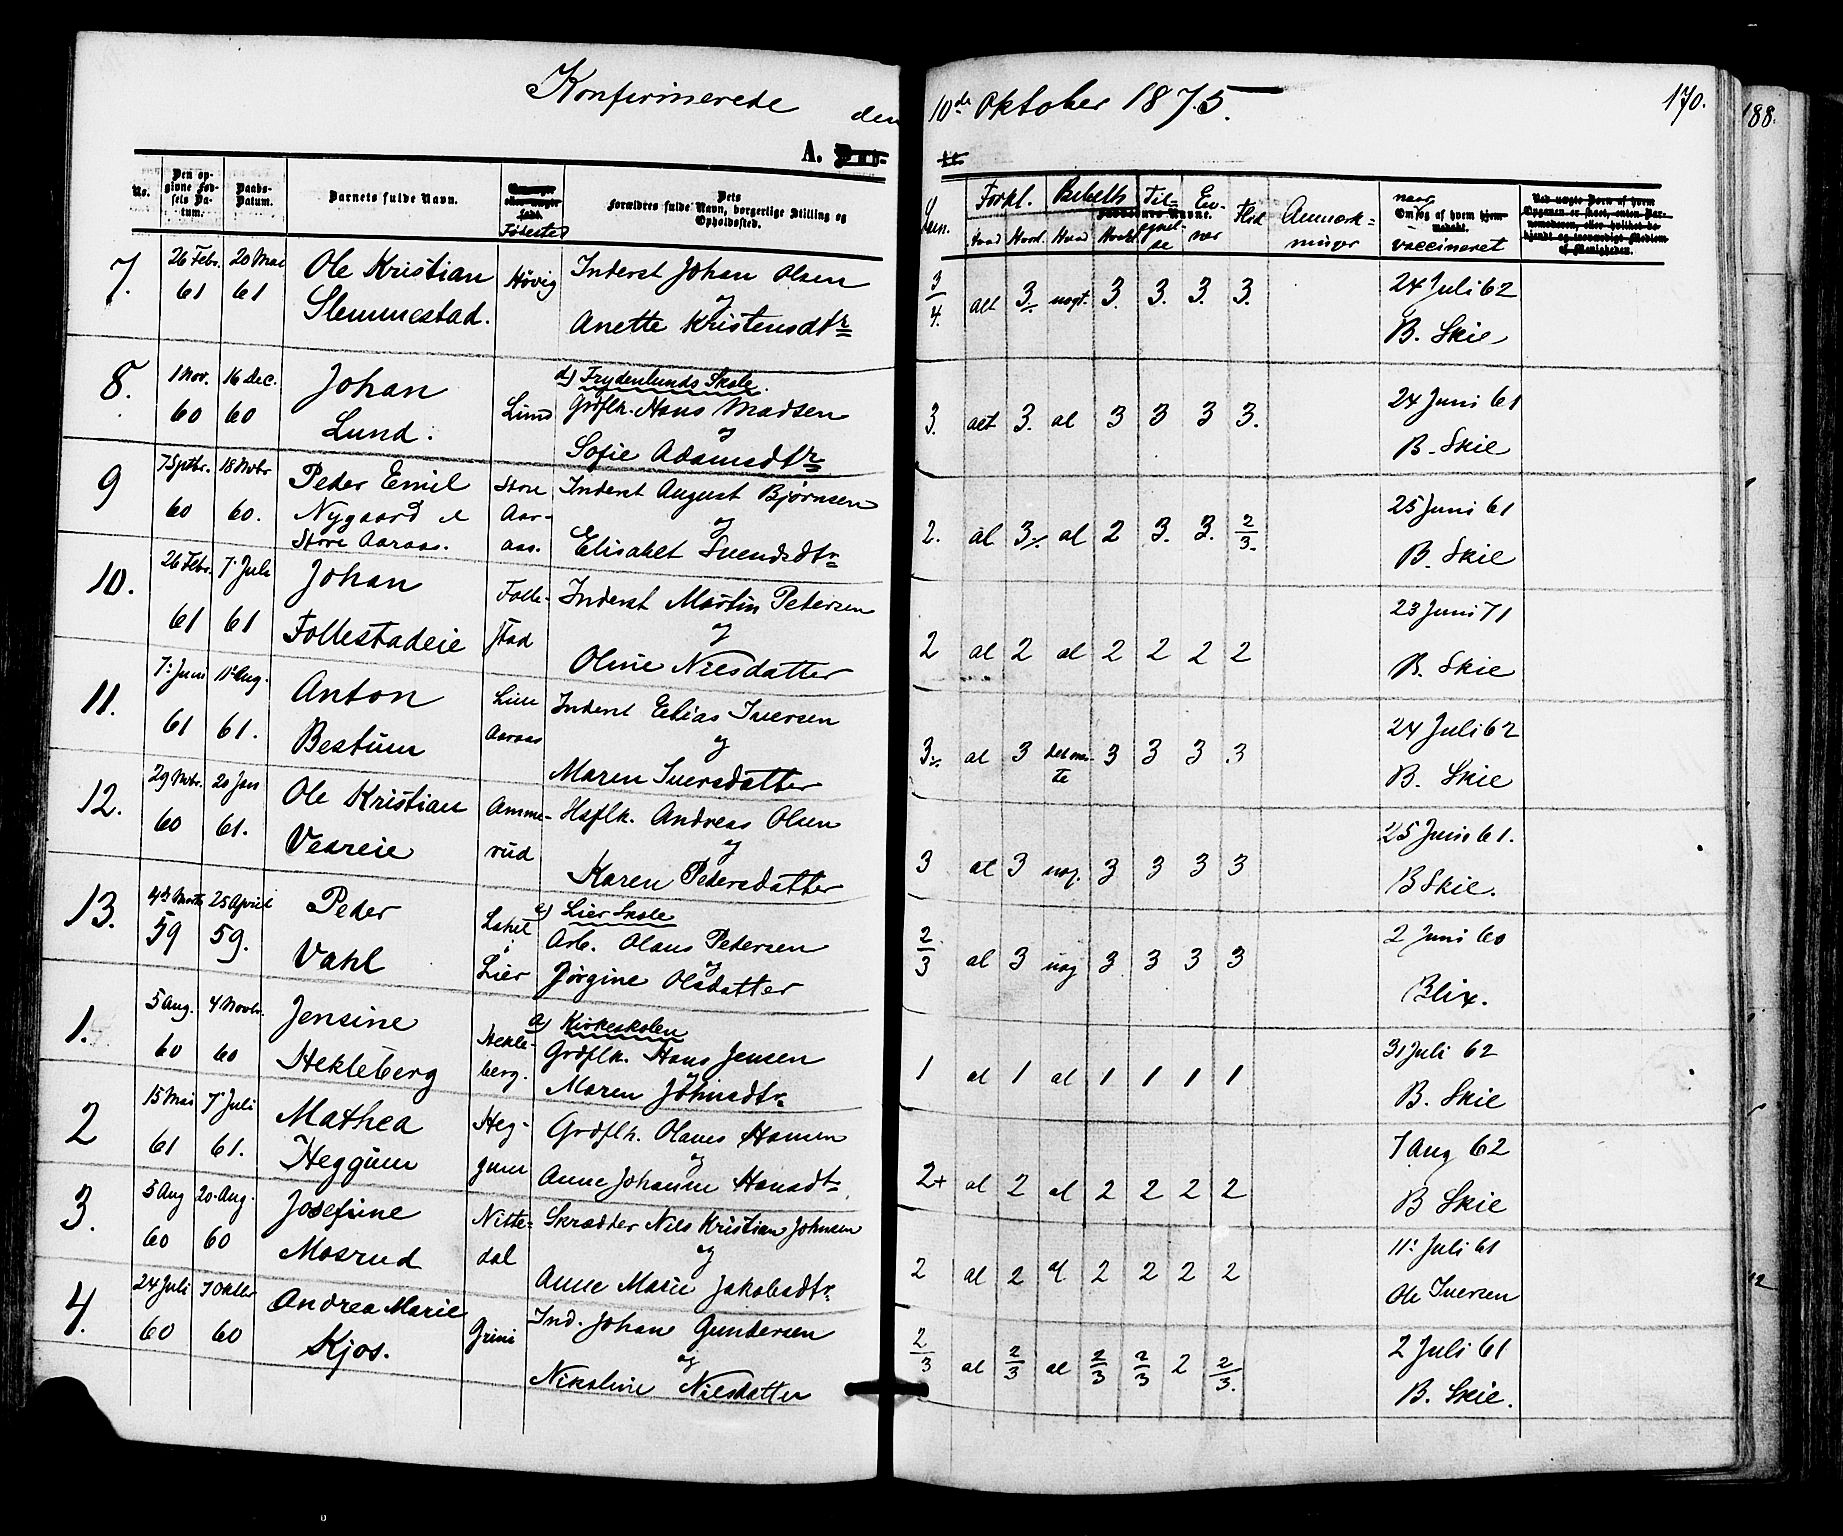 Konfirmerede den 10de Oktober 1875.
170.
188.
A.
No. Den opgivne Fødsels Datum. Daabs-Datum. Barnets fulde Navn. Fødested Dets Forældres fulde Navn, borgerlige Stilling og Opholdssted. Forkl. Bibelh Flid Anmærkninger vaccineret
7. 26 Febr. 61 20 Mai 61 Ole Kristian Høvig Inderst Johan Olsen 3/4. alt 3 nogt. 3. 3. 3. 3. 24 Juli 62
Slemmestad. og Anette Kristensdtr B. Skie
d) Frydenlunds Skole.
8. 1 Nov. 60 16 Dec. 60 Johan Lund Grdflk. Hans Madsen 3. alt 3. al 3 3 3 3. 24 Juni 61
Lund. og Sofie Adamsdtr B. Skie
9 7 Sptbr. 60 18 Nvbr 60. Peder Emil Store Inderst August Bjørnsen 2. al 3 al 2 3. 3. 2/3. 25 Juni 61
Nygaard Aar- og
Store Aaraas. aas. Elisabet Svendsdtr B. Skie
10. 26 Febr. 61 7. Juli 61 Johan Folle- Inderst Martin Petersen 2 al 2 al 2 2 2 2 23 Juni 71
Follestadeie stad og Oline Nilsdatter B. Skie
11. 7. Juni 61 11. Aug. 61. Anton Inderst Elias Iversen 3 al 3 3 3 3 3 24 Juli 62
Bestum Aaraas og Maren Iversdatter B. Skie
12. 29 Nvbr. 60 20 Jan 61. Ole Kristian Amme- Hsflk. Andreas Olsen 3 al 3 nog. 3 3 3 3 25 Juni 61.
Vesreie rud og Karen Pedersdatter B Skie.
e) Lier Skole
13. 4de Marts 59 25 April 59. Peder Arb. Olaus Pedersen 2/3 al 3 nog 3 3 3 3 2 Juni 60
Vahl Lier og Jørgine Olsdatter Blix.
a) Kirkeskolen
1. 5 Aug. 60 4 Novbr. 60 Jensine Hekle- Grdflk. Hans Jensen 1 al 1 al 1 1 1 1 31 Juli 62
Hekleberg berg. og Maren Johnsdtr B. Skie
2 15 Mai 61 7. Juli 61. Mathea Heg- Grdflk. Olaves Hansen 2+ al 2 al 2 2 2 2 7 Aug 62
Heggum gum og Anne Johanne Hansdtr. B Skie
3. 5 Aug 60 20. Aug. 60 Josefine Nitte- Skrædder Nils Kristian Johnsen 2 al 2 al 2 2 2 2 11. Juli 61
Mosrud dal og Anne Marie Jakobsdtr. Ole Iversen
4. 24 Juli 60 7 Oktbr 60 Andrea Marie Grini Ind. Johan Gundersen 2/3 al 2/3 al 2/3 2/3 2 2/3. 2 Juli 61
Kjos. og Nikoline Nilsdatter B. Skie.